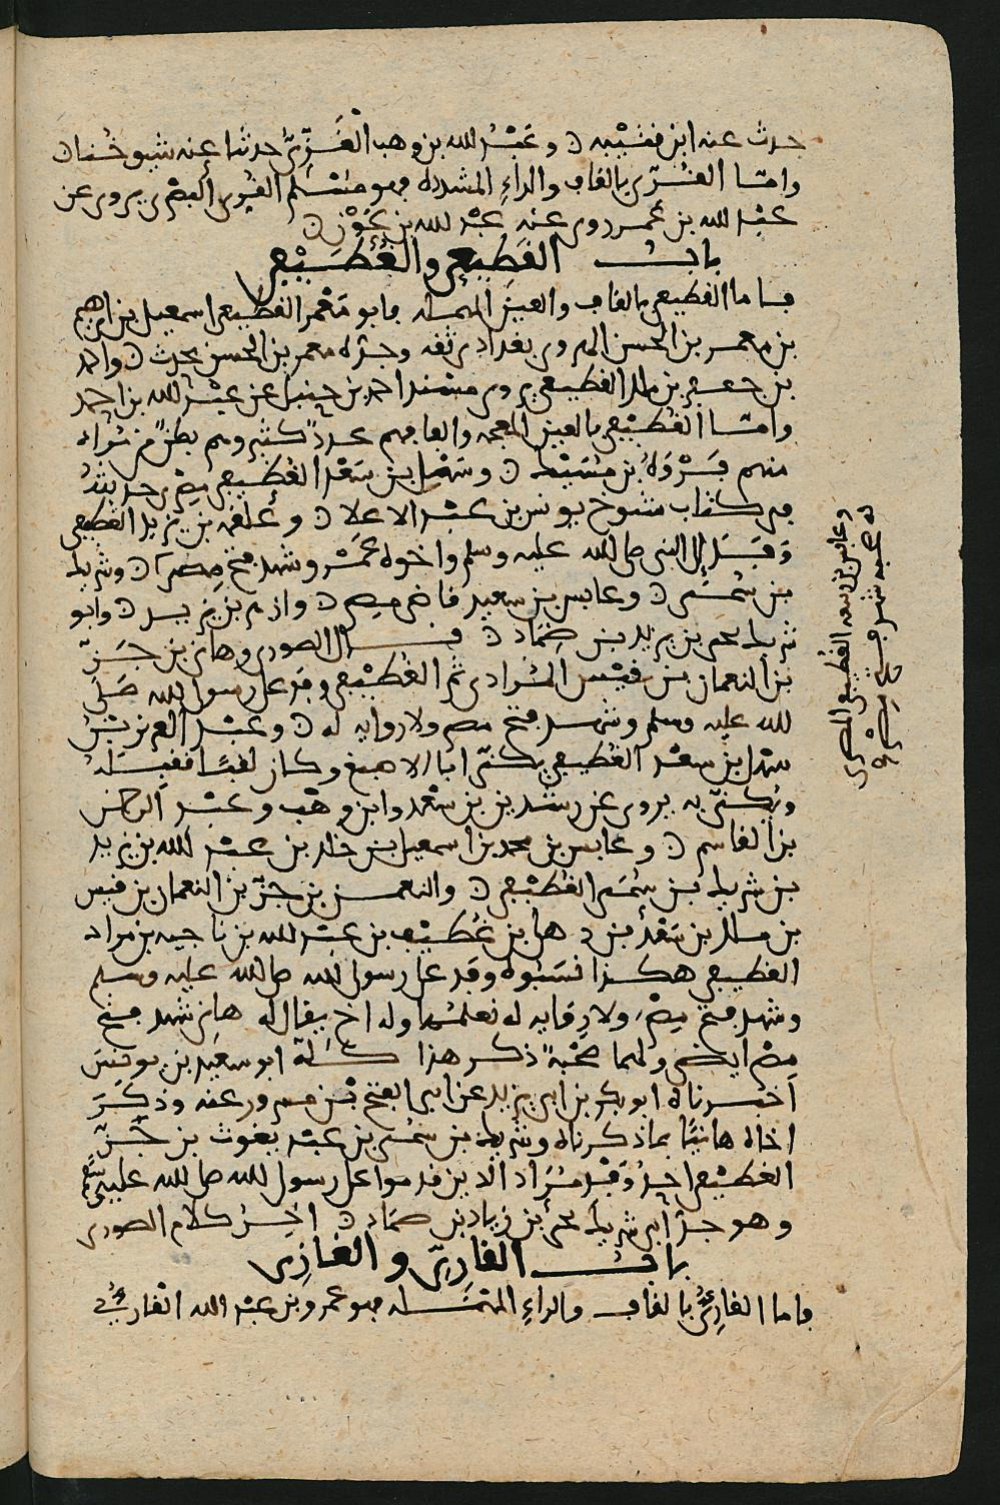 حدث عنه ابن قتيبه ۞ وعَبْدُ الله بن وهب الغَزِّيّ حدثنا عنه شيوخُنا ۞
وامّا القُرّي بالقاف والراءِ المشدده فهو مُسْلِم القُرِّي البصْري يروى عن
عبْد الله بن عمر روى عنه عبْد الله بن عَوْن ۞
بابُ القَطِيعي والغُطَيْفي
فاما القطيعي بالقاف والعين المهمله فابو مَعْمر القطيعي اسمعيل بن ابرهيم
بن معمر بن الحسن الهروي بغدادي ثقه وجدّه معمر بن الحسن محدث ۞ واحمد
بن جعفر بن ملك القطيعي يروى مسْند احمد بن حنبل عن عبْد الله بن احمد
وامّا الغُطيْفي بالغين المعجمه والفا فهم عددٌ كثير وهم بطنٌ من مُراد
منهم فَرْوَةُ بن مُسَيْك ۞ وسَهْل بن سَعْد الغُطيفي مصْري حديثُه
في كتاب شيوخ يونس بن عبْد الاعلا ۞ وعلقمه بن يزيد الغطيفي
وَفَدَ الى النبي صلى الله عليه وسلم واخوه عَمْرو شهد فتح مصر ۞ وشريك
بن سُمَي ۞ وعابس بن سعيد قاضي مصر ۞ وازهر بن يزيد ۞ وابو
شريك يحيى بن يزيد بن ضِمَاد ۞ قال الصوري وهانى بن جَزْء
بن النعمان بن قيْس المُرادي ثم الغُطيْفي وفد على رسول الله صَلّى
الله عليه وسلم وشهد فتح مصر ولا روايه له ۞ وعبْد العزيز بْن
سهْل بن سعْد الغُطيفي يكنّى ابا الاصبغ وكان لقبًا فقبله
وتكنّى به يروى عن رشْدين بن سعْد وابن وهْب وعبْد الرحمن
بن القاسم ۞ وعابس بن محمد بن اسمعيل بن خالد بن عبْد الله بن يزيد
بن شريك بن سُمَي الغُطيْفي ۞ والنعمن بن جزْء بن النعمان بن قيس
بن ملك بن سَعْد بن ذهل بن غُطيْف بن عبْد الله بن ناجيه بن مراد
الغطيفي هكذا نسَبُوه وفد على رسول الله صلى الله عليه وسلم
وشهد فتح مصْرَ ولا روايه له نعلمُها وله اخ يقال له هانى شهد فتح
مصْر ايضًا ولهما صُحْبةٌ ذكر هذا كلّهُ ابو سعيد بن يونسَ
اخْبرناه ابو بكر بن ابي يزيد عن ابي الفتح بْن مسرور عنه وذكَرَ
اخاه هانيًا بما ذكرناه وشريك بن سُمَي بن عبْد يغوث بن جَزْء
الغُطيْفي احدُ وفْد مُرَاد الذين قدموا على رسول الله صلى الله عليه وسلم
وهو جدّ ابي شريك يحيى بن زياد بن ضماد ۞ اخرُ كلام الصوري
بابُ القارِيّ والغازِي
فاما القارِيّ بالقاف والراءِ المهمله فهو عمرو بن عبْد الله القارِيّ
وعابس بن سعيد الغُطيْفي المصْرى